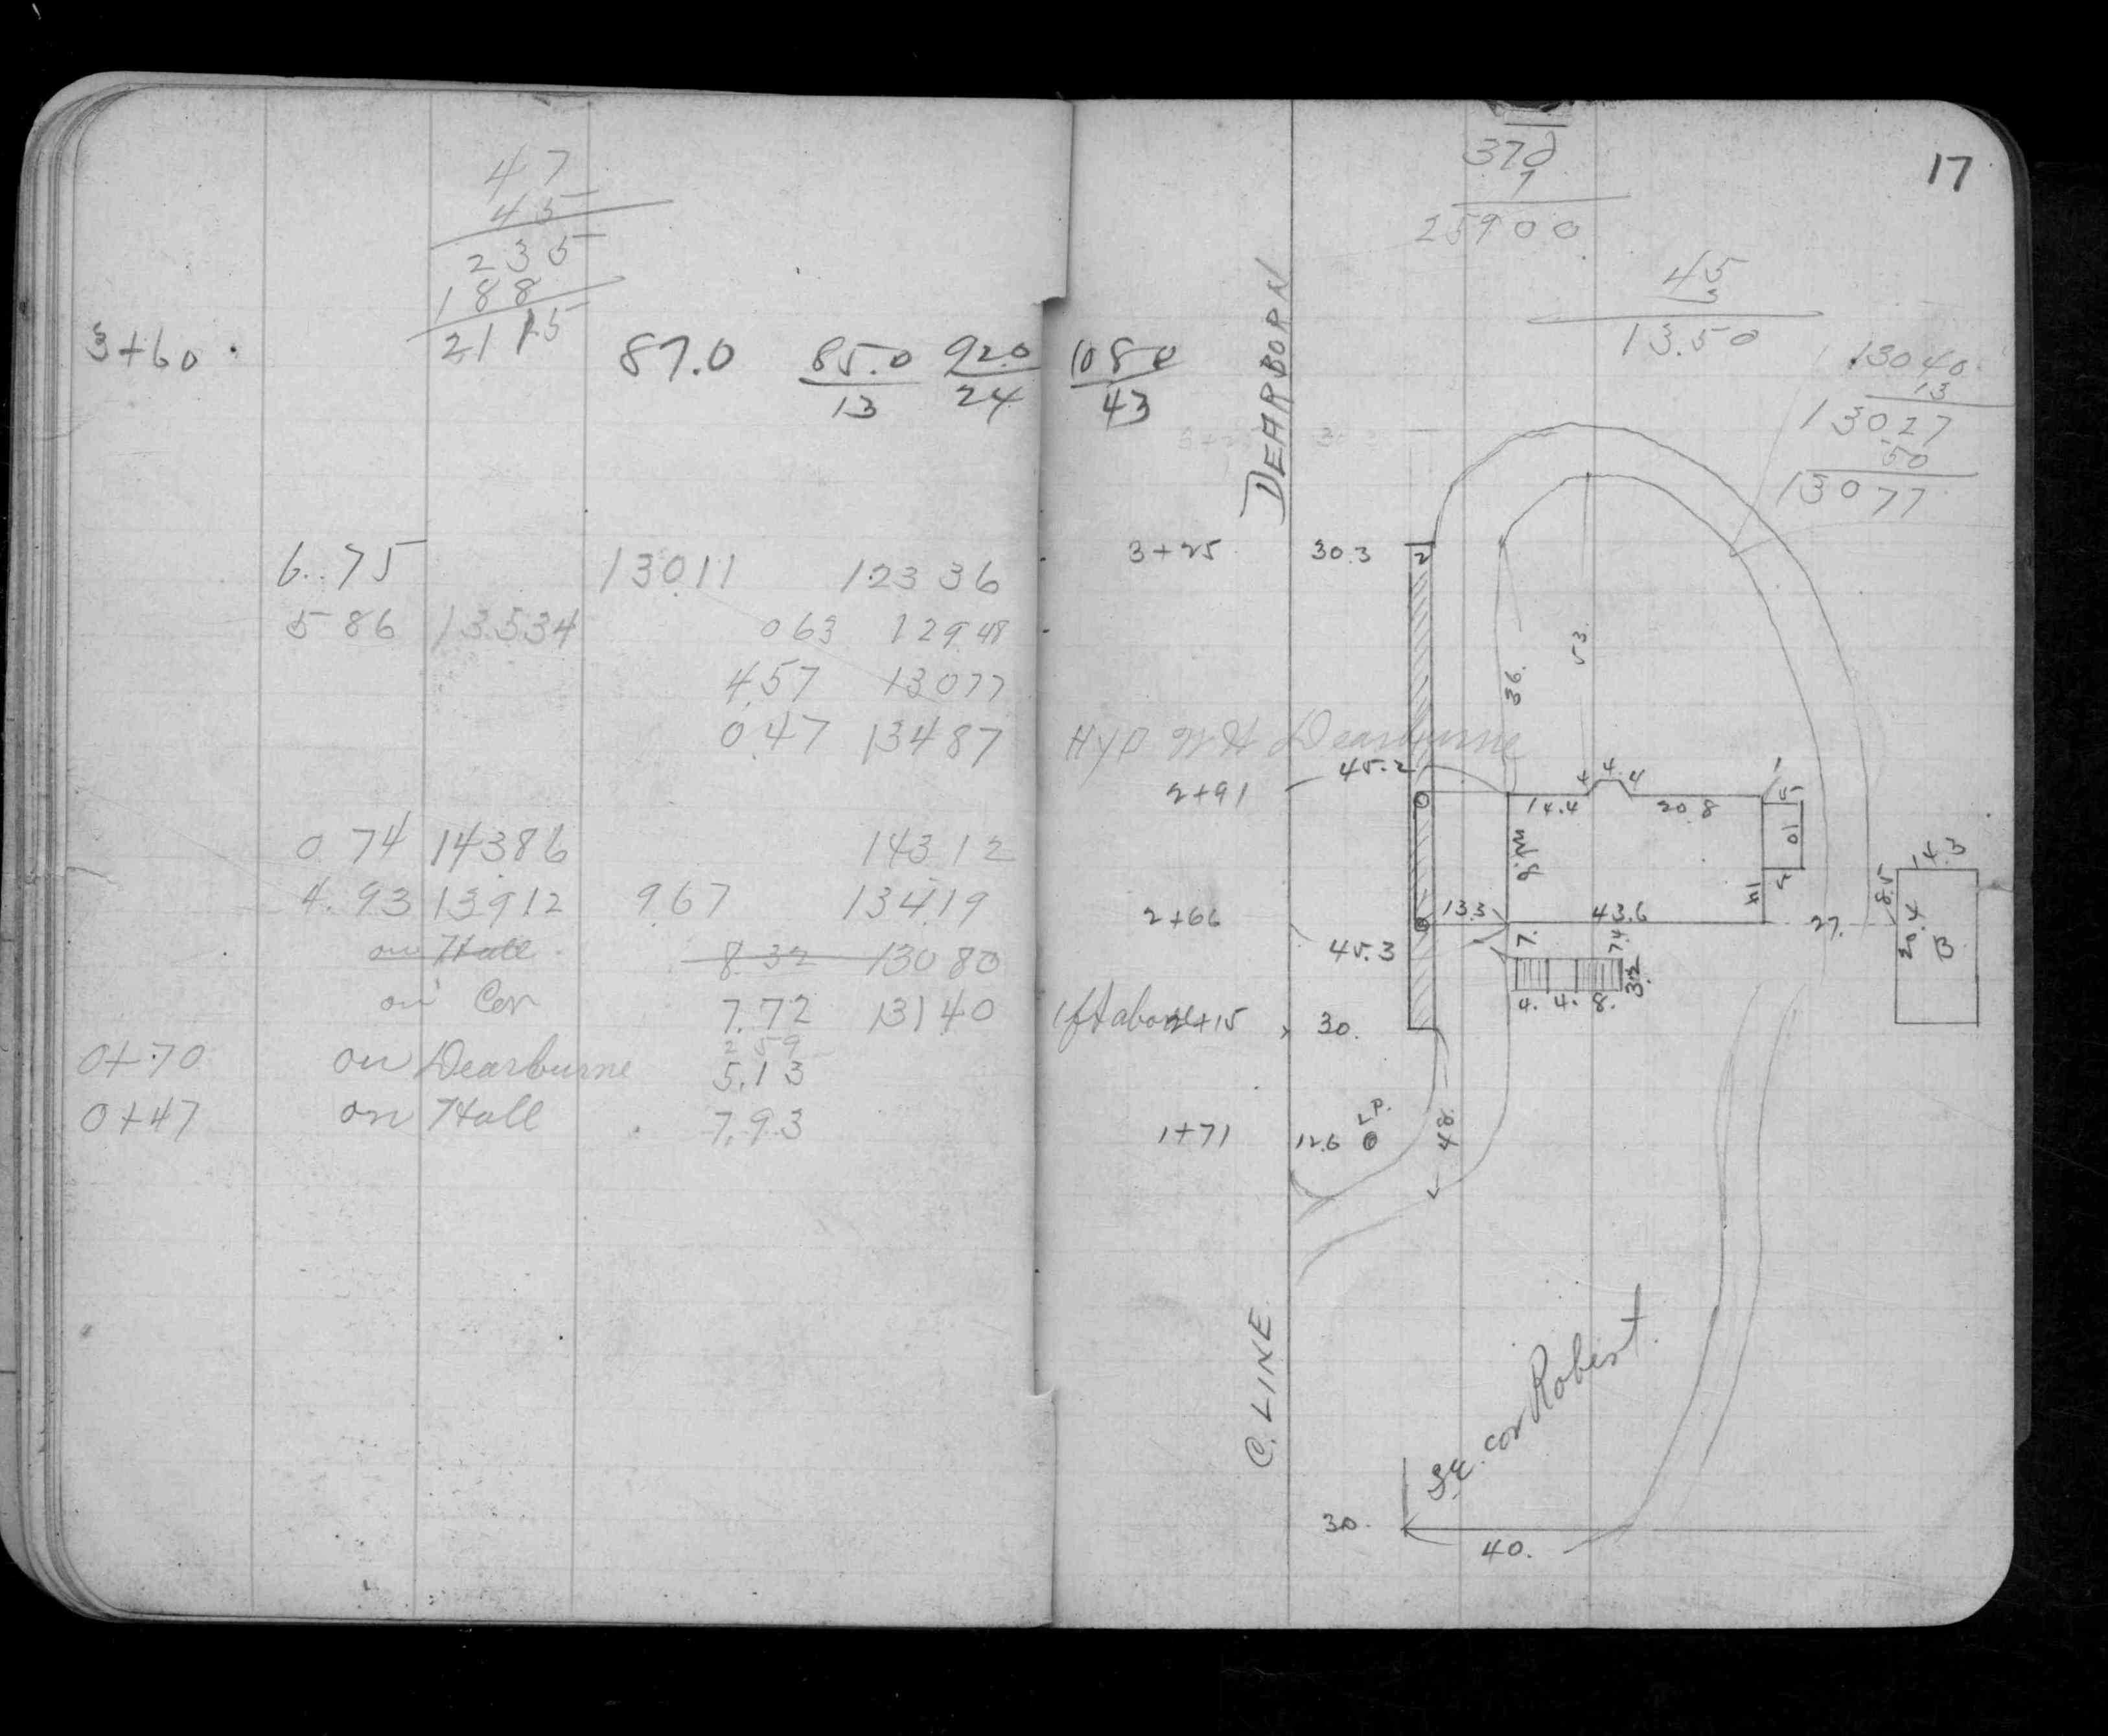 47
45
235
188
2115
3+60 87.0 85.0/13 92.0/24 108.0/43
6.75 130.11 123 36
5 86 135.34 0 63 129.48
4.57 130 77
0.47 134 87 HYD Dearburne
0 74 143 86 143 12
4.93 139 12 9 67 134 19
on Hall 8 32 130 80
on Cor 7.72 131 40 1ft above
2 59
0+70 on Dearburne 5.13
0+47 on Hall 7.93
17
370
7
25900
45
3
13.50
13040
13
13027
50
13077
DEARBORN
3+25 30.3 2
36. 53.
2+91 45.2 14.4 4 4. 4 20.8 1 5
10
5
14.3
8.5
20.4
B
2+66 13.3 43.6 27.
45.3 7. 7.4
4. 4. 8. 3.2
2+15 30.
1+71 12.6 L.P. 48.
C. LINE
SE. cor Robert.
30. 40.